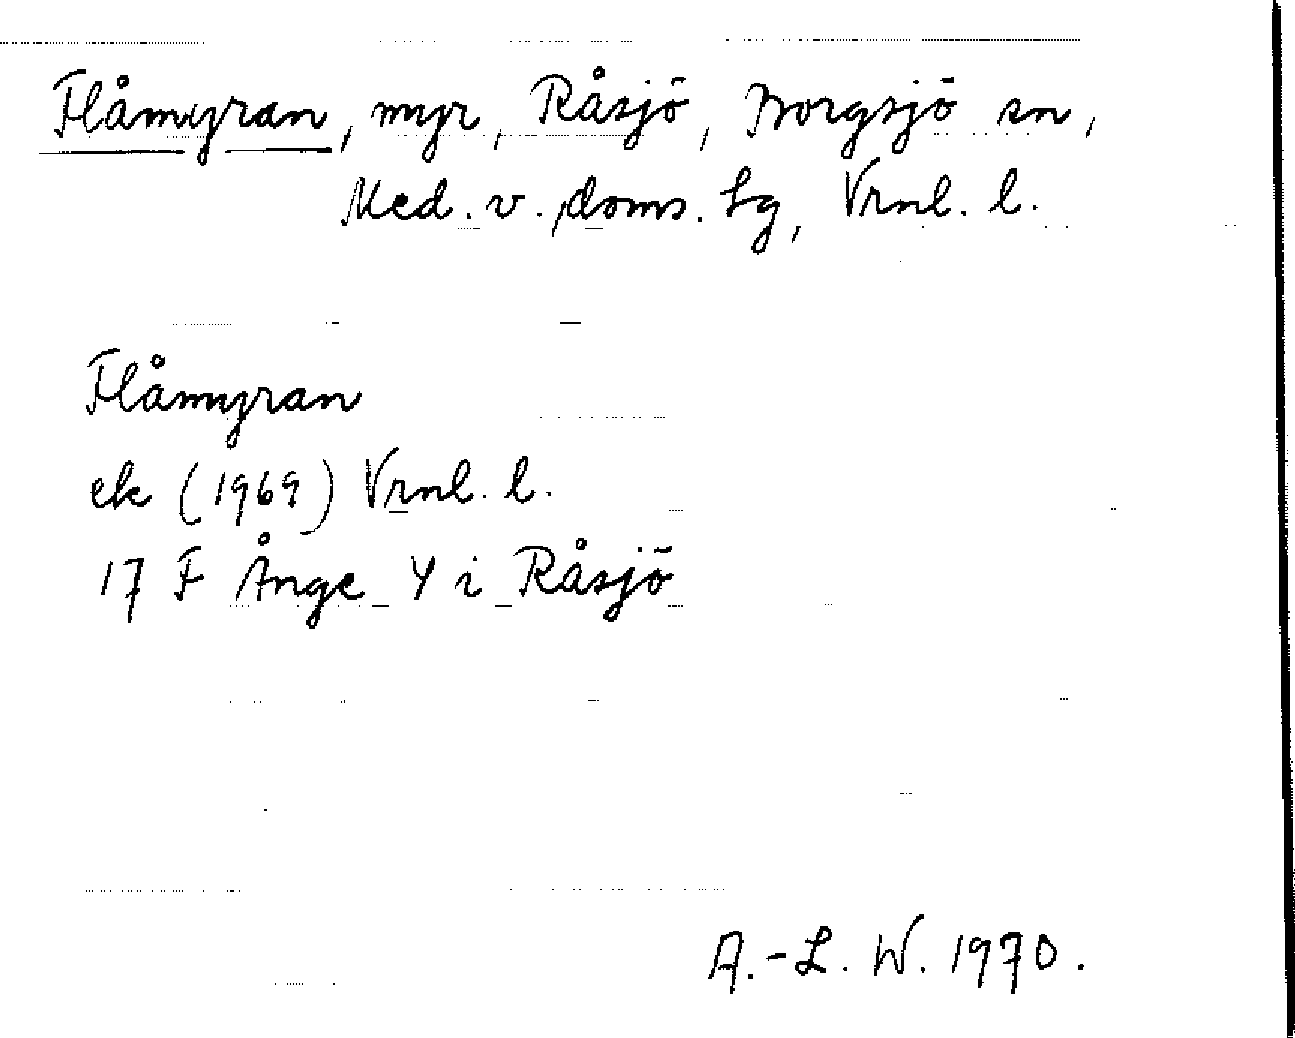 Flåmyran, myr, Råsjö, Borgsjö sn,
Med. v. doms. lg, Vrnl. l.
Flåmyran
ek (1969) Vrnl. l.
17 F Ånge Y i Råsjö
A.-L. W. 1970.